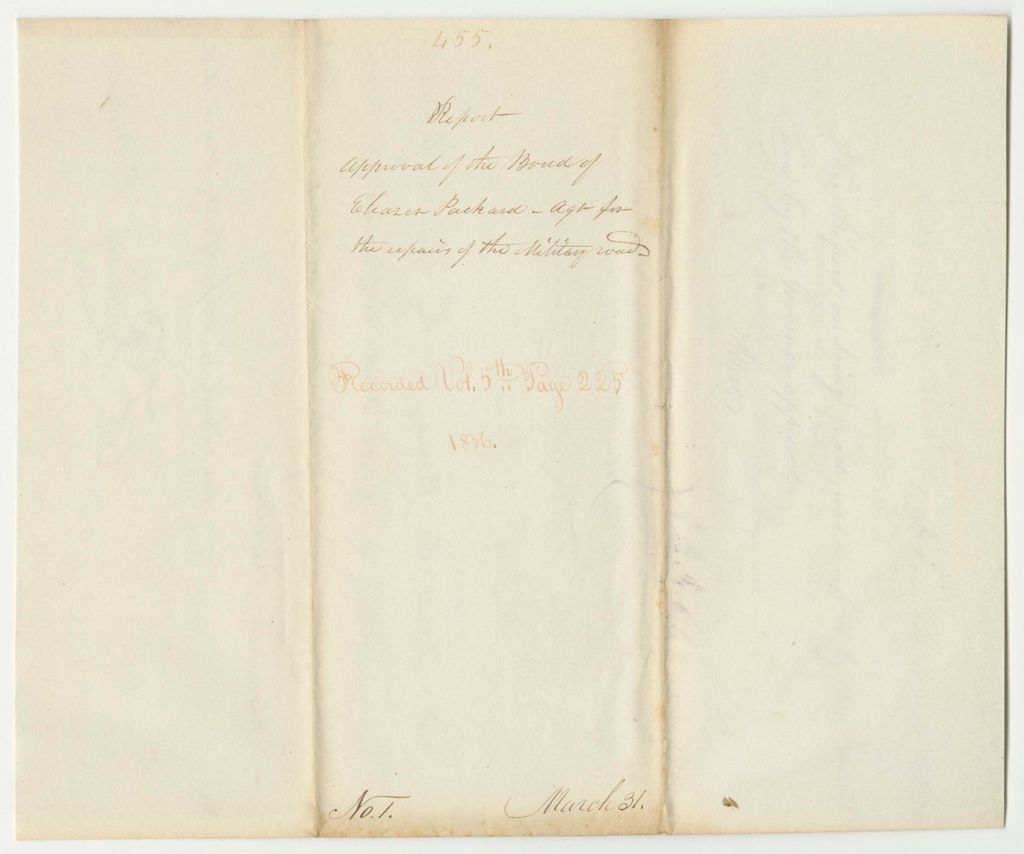 455.
Report
Approval of the Bond of
Eleazer Packard - Agt for
the repairs of the Military road
Recorded Vol. 5th Page 225
1836.
No. 1. March 31.